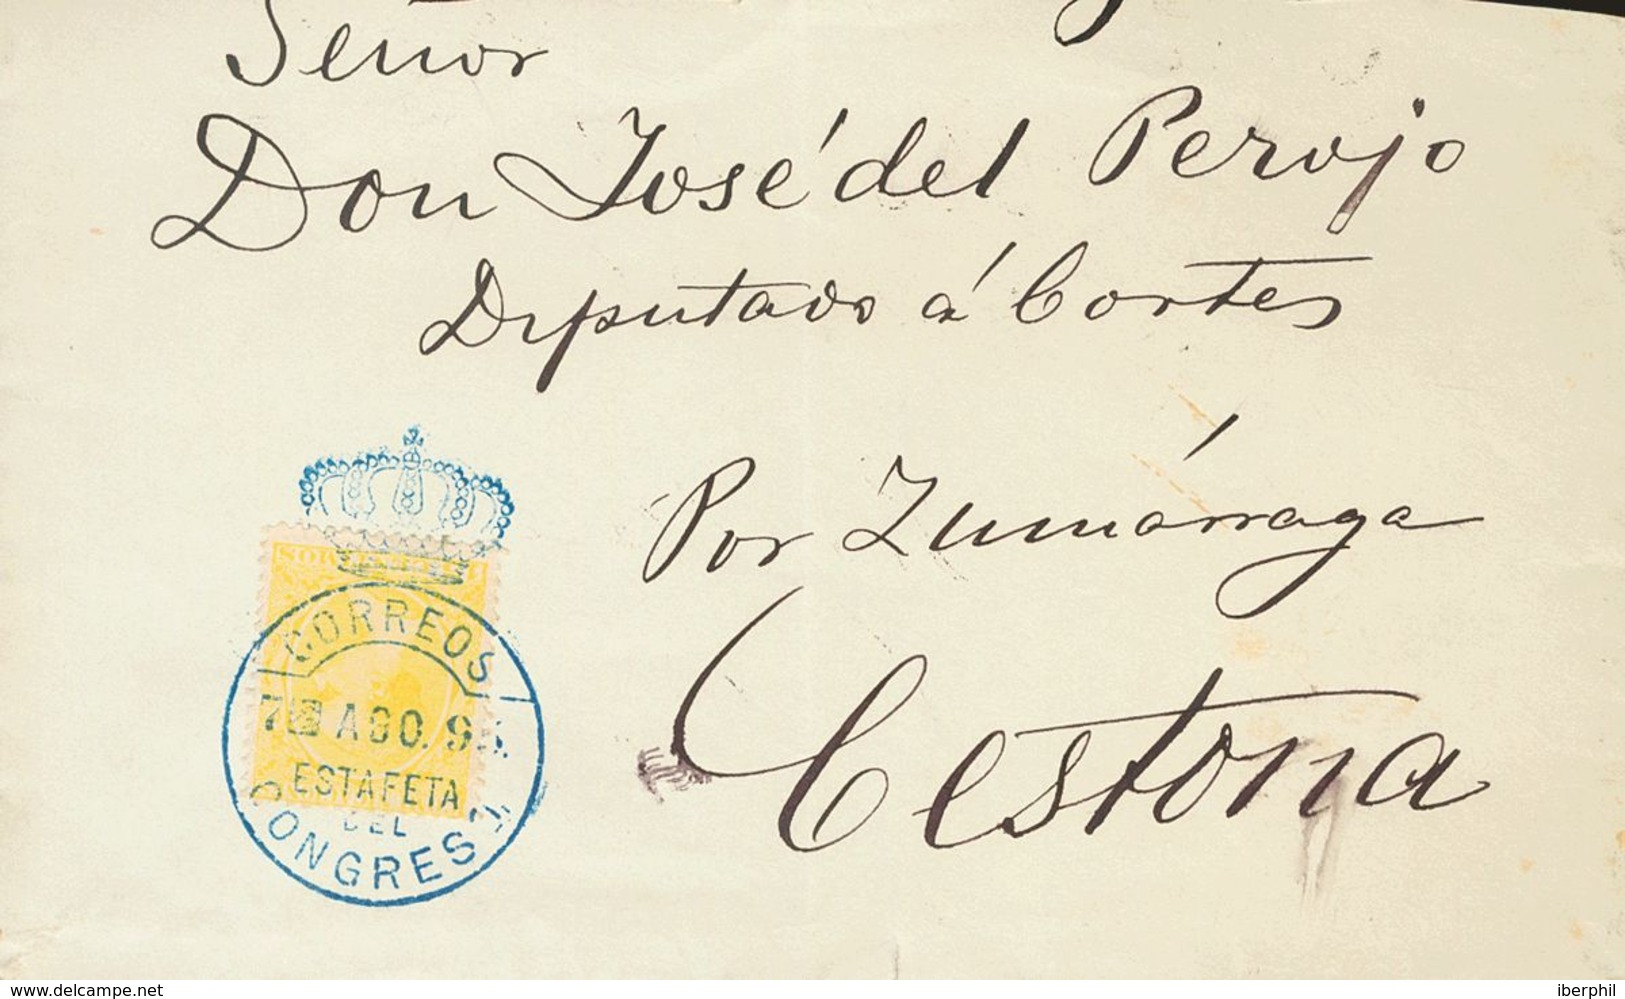 Señor
Don José del Perojo
Diputado á Cortes
Por Zumárraga
Cestona
CORREOS
7 AGO. 95
ESTAFETA
DEL
CONGRESO
www.delcampe.net
iberphil